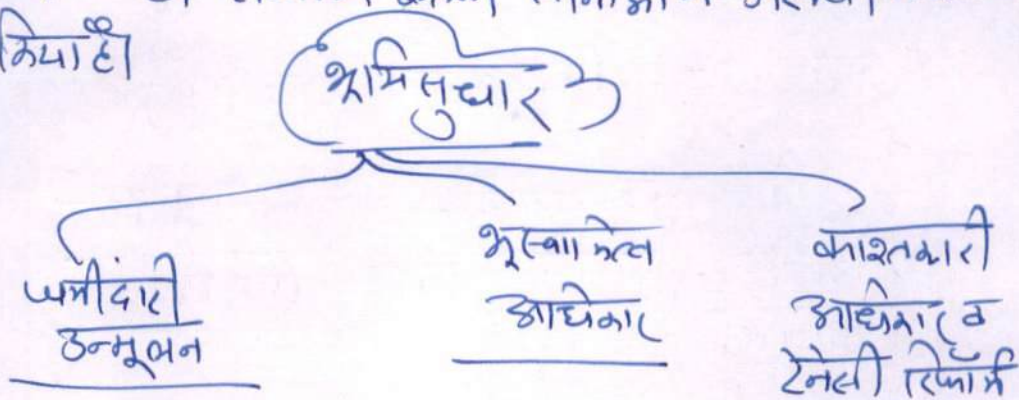 किया है।
भूमि सुधार
जमींदारी
उन्मूलन
भूस्वामित्व
अधिकार
काश्तकारी
अधिकार व
टेनेंसी रिफॉर्म